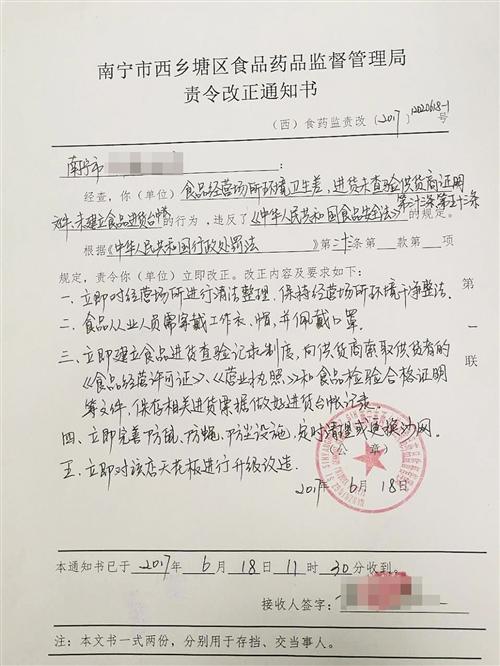 南宁市西乡塘区食品药品监督管理局
责令改正通知书
（西）食药监责改〔2017〕120618-1号
南宁市 ：
经查，你（单位）食品经营场所环境卫生差，进货未查验供货商证明
文件，未建立食品进货台帐的行为，违反了《中华人民共和国食品安全法》第三十三条第五十三条的规定。
根据《中华人民共和国行政处罚法》第二十三条第 款第 项
规定，责令你（单位）立即改正。改正内容及要求如下：
一、立即对经营场所进行清洁整理，保持经营场所环境干净整洁。
二、食品从业人员需穿戴工作衣、帽，并佩戴口罩。
三、立即建立食品进货查验记录制度，向供货商索取供货者的
《食品经营许可证》、《营业执照》和食品检验合格证明
等文件，保存相关进货票据做好进货台帐记录。
四、立即完善防鼠、防蝇、防尘设施，定时清理或更换沙网。
五、立即对该店天花板进行升级改造。
（公 章）
2017年 6月 18日
第一联
本通知书已于 2017年 6月 18日 11时 30分收到。
接收人签字：
注：本文书一式两份，分别用于存挡、交当事人。